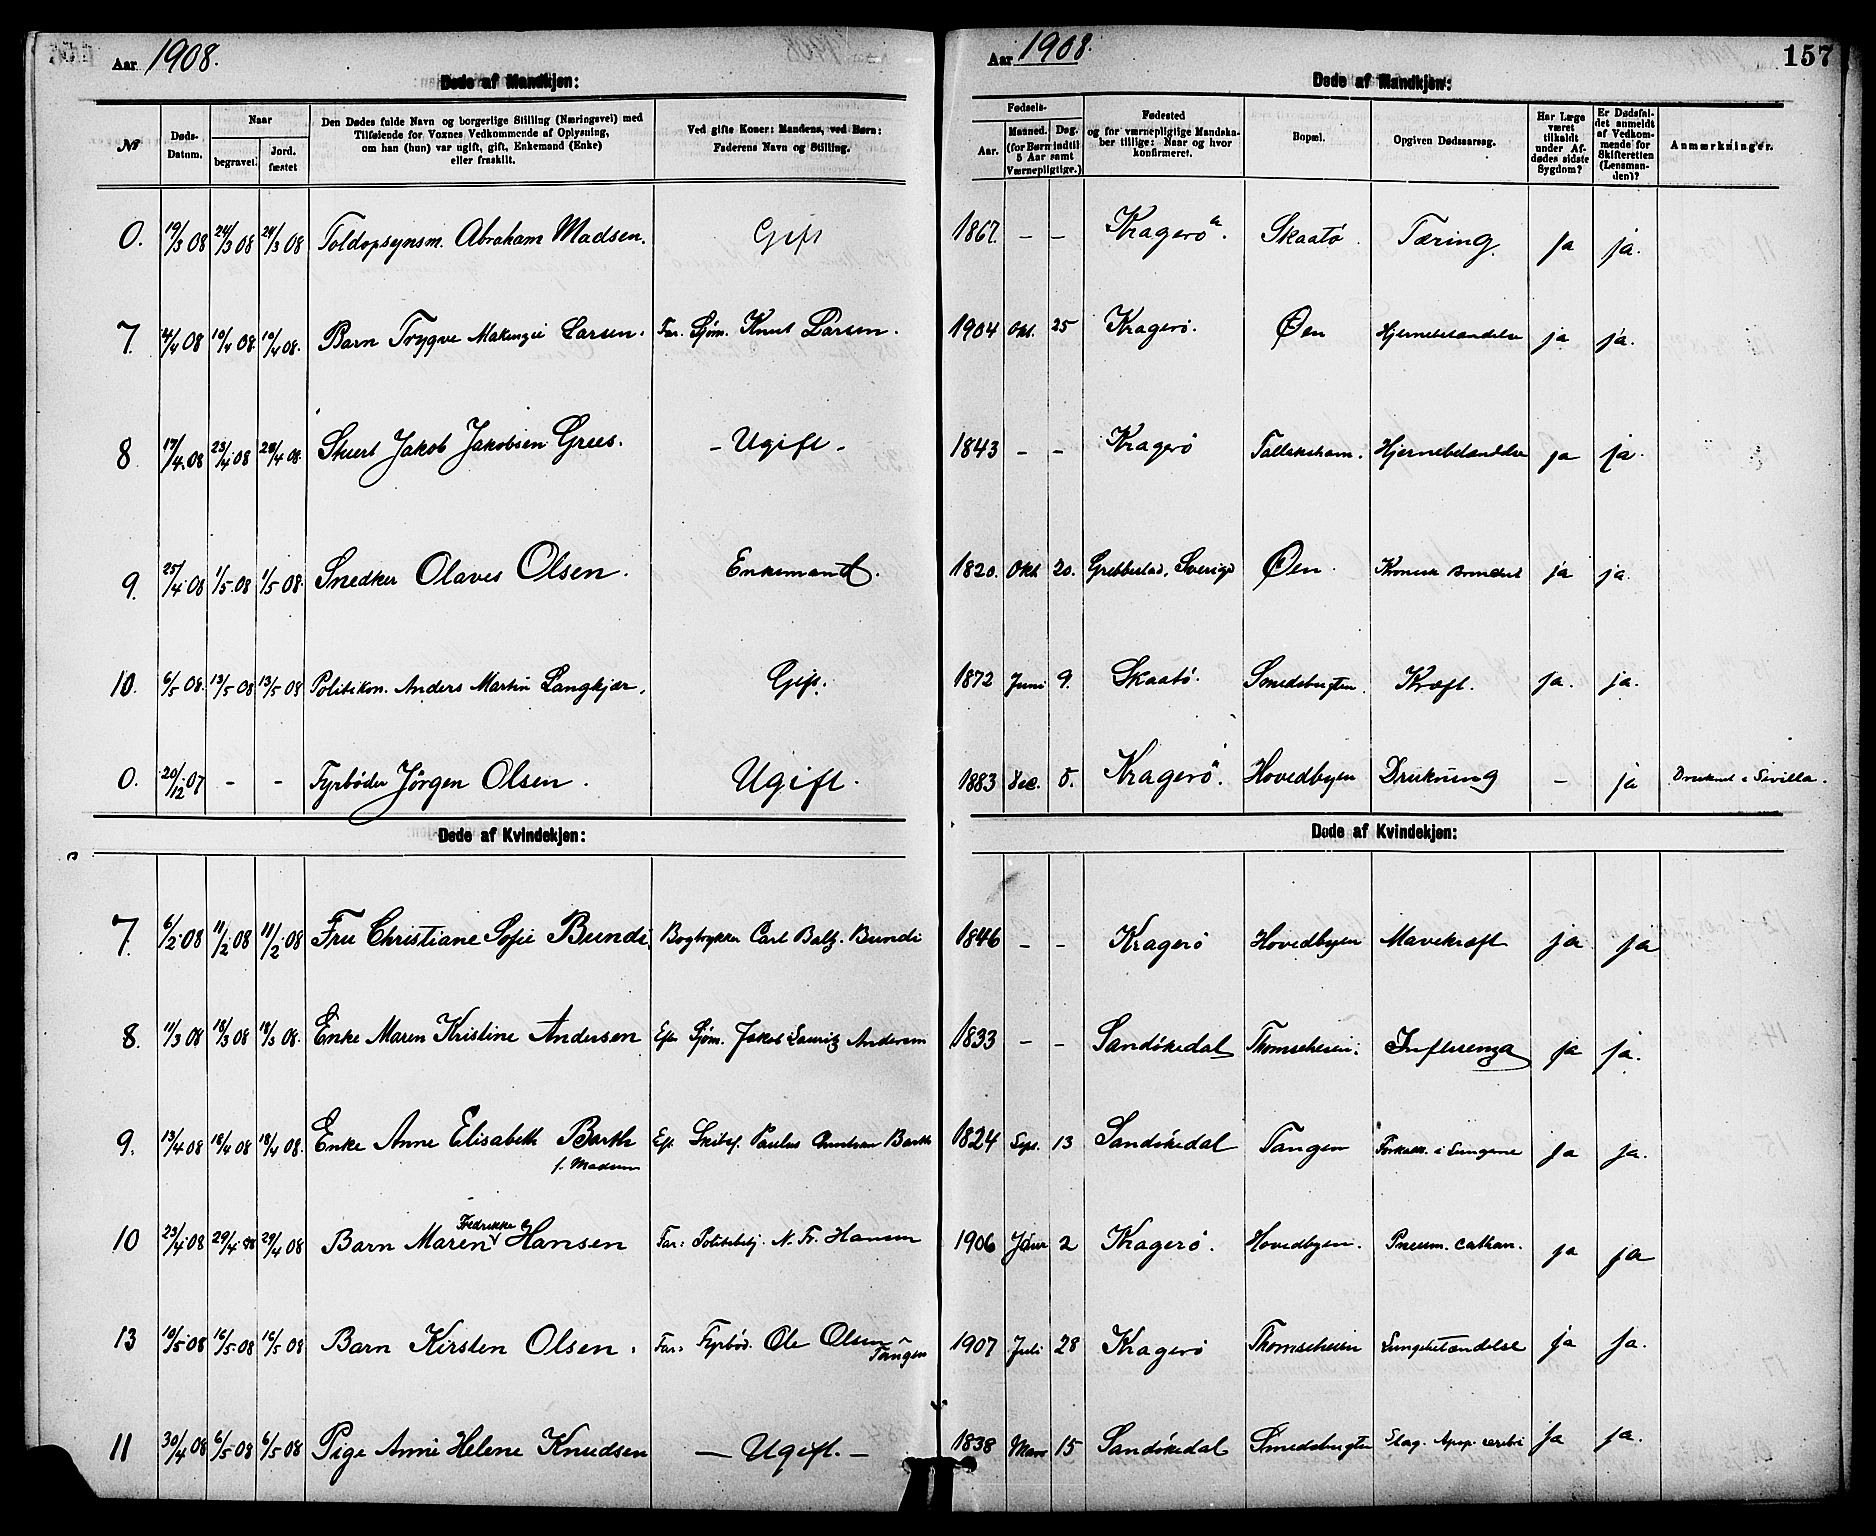 Aar 1908.
Døde af Mandkjøn:
№
Døds-Datum.
Naar
begravet.
Jord-fæstet
Den Dødes fulde Navn og borgerlige Stilling (Næringsvei) med
Tilføiende for Voxnes Vedkommende af Oplysning,
om han (hun) var ugift, gift, Enkemand (Enke)
eller fraskilt.
Ved gifte Koner: Mandens, ved Børn:
Faderens Navn og Stilling.
Aar 1908.
157
Døde af Mandkjøn:
Fødsels-
Aar.
Maaned. Dag.
(for Børn indtil
5 Aar samt
Værnepligtige.)
Fødested
og for værnepligtige Mandska-
ber tillige: Naar og hvor
konfirmeret.
Bopæl.
Opgiven Dødsaarsag.
Har Læge
været
tilkaldt
under Af-
dødes sidste
Sygdom?
Er Dødsfal-
det anmeldt
af Vedkom-
mende for
Skifteretten
(Lensman-
den)?
Anmærkninger.
0. 19/3 08 24/3 08 24/3 08 Toldopsynsm. Abraham Madsen. Gift 1867. — — Kragerø. Skaatø. Tæring. ja ja.
7. 4/4 08 10/4 08. 10/4 08. Barn Trygve Makenzie Larsen. Far. Sjøm. Knut Larsen. 1904 Okt. 25 Kragerø. Øen Hjernebetændelse ja ja.
8 17/4.08 23/4 08 28/4 08. Jakob Jakobsen Grees. – Ugift – 1843 – – Kragerø Hjernebetændelse ja ja.
9. 25/4 08 1/5.08 1/5 08. Snedker Olaves Olsen. Enkemand. 1820. Okt. 20. Grebbestad, Sverige Øen. Kronisk ja ja.
10. 6/5 08. 13/5 08 13/5 08 Politikon. Anders Martin Langkjær. Gift. 1872 Juni 9. Skaatø. Smedsbugten. Kræft. ja. ja.
0. 20/12.07 – – Fyrbøder Jørgen Olsen. Ugift. 1883 Dec. 5. Kragerø. Hovedbyen Drukning – ja Druknet i Sevilla.
Døde af Kvindekjøn:
Døde af Kvindekjøn:
7. 6/2.08 11/2 08 11/2 08 Fru Christiane Sofie Bundi Bogtrykker Carl Baltz. Bundi 1846 – – Kragerø Hovedbyen Mavekræft ja ja
8. 11/3 08 18/3 08 18/3 08. Enke Maren Kristine Andersen Eft. Sjøm. Jakob Lauritz Andersen 1833 – – Sandøkedal Thomseheien. Influenza ja ja.
9. 13/4 08 18/4 08 18/4 08. Enke Anne Elisabeth Barth f. Madsen Ef. Skibsf. Paulus Barth 1824 Sept. 13 Sandøkedal Tangen Forkalk. i Lungerne ja ja.
10 23/4.08 29/4.08 29/4 08 Barn Maren Fredrikke Hansen Far: Politibetj. N. Fr. Hansen 1906 Janr 2 Kragerø. Hovedbyen. Pneum. cathar. ja ja
13 10/5.08 16/5.08 16/5 08 Barn Kirsten Olsen. Far: Fyrbød. Ole Olsen – Tangen 1907 Juli 28 Kragerø Thomseheien Lungebetændelse ja ja.
11 30/4 08 6/5 08 6/5 08 Pige Anne Helene Knudsen – Ugift. – 1838 Mars 15 Sandøkedal Smedsbugten Slag. Apop. cerebri ja ja.